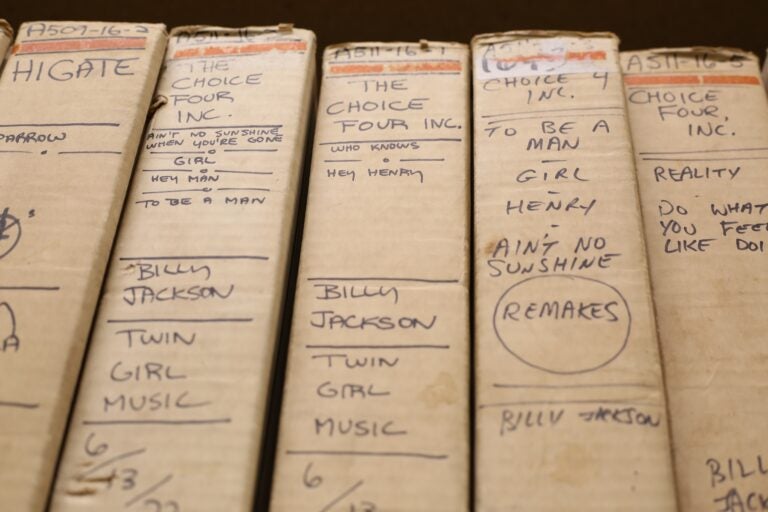 A509-16-2
HIGATE
PARROW
THE
CHOICE
FOUR
INC.
AIN'T NO SUNSHINE
WHEN YOU'RE GONE
GIRL
HEY MAN
TO BE A MAN
BILLY
JACKSON
TWIN
GIRL
MUSIC
6/13/
A511-16-1
THE
CHOICE
FOUR INC.
WHO KNOWS
HEY HENRY
BILLY
JACKSON
TWIN
GIRL
MUSIC
6/13
CHOICE 4
INC.
TO BE A
MAN
GIRL
HENRY
AIN'T NO
SUNSHINE
REMAKES
BILLY JACKSON
A511-16-5
CHOICE
FOUR,
INC.
REALITY
DO WHAT
YOU FEE
LIKE DOI
BILL
JACK